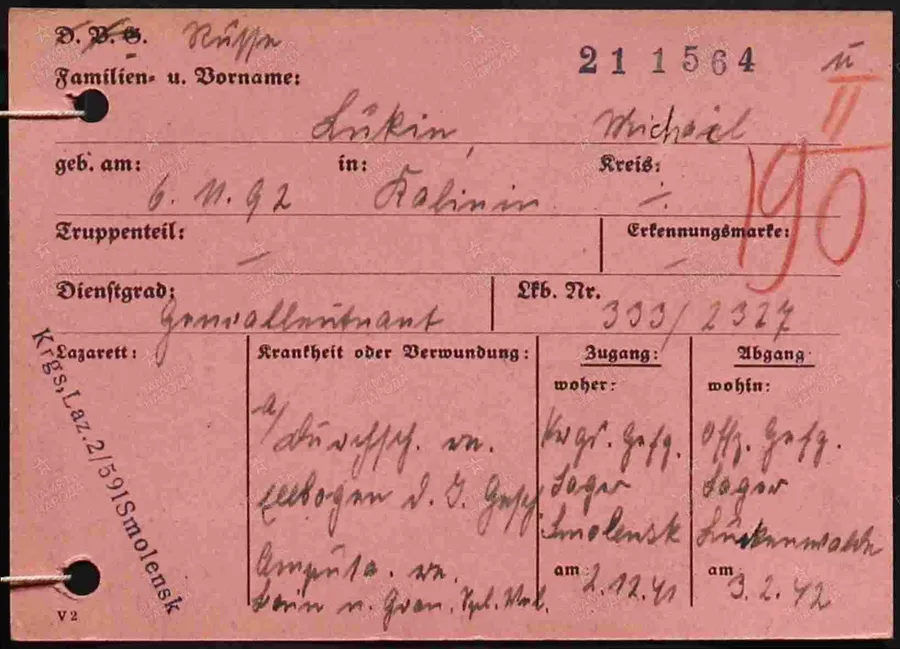 D. B. G. Russe
211564 u
Familien- u. Vorname:
II
Lukin, Michail
190
geb. am: in: Kreis:
6. 11. 92 Kalinin ./.
Truppenteil: Erkennungsmarke:
— —
Dienstgrad: Lkb. Nr.
Generalleutnant 333/2327
Lazarett: Krankheit oder Verwundung: Zugang: Abgang
woher: wohin:
Krgs. Laz. 2/591 Smolensk
a/
Durchsch. re. Krgs. Gefg. Offz. Gefg.
Ellbogen d. I. Gesch. Lager Lager
Smolensk Luckenwalde
Amputa. re. am 2.12.41 am 3.2.42
Bein n. Gran. Spl. Verl.
V 2